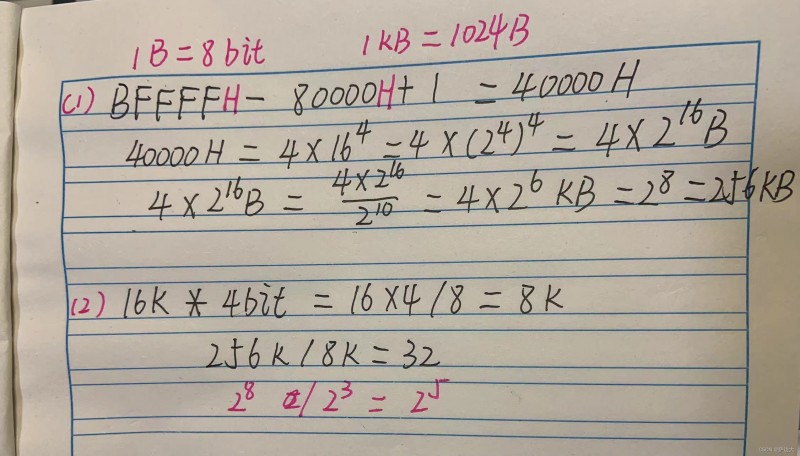 1B=8bit 1KB=1024B
(1) BFFFFH- 80000H+1 =40000H
40000H = 4×16⁴ =4×(2⁴)⁴ = 4×2¹⁶B
4×2¹⁶B = 4×2¹⁶/2¹⁰ = 4×2⁶ KB =2⁸ =256KB
(2) 16K * 4bit = 16×4/8 = 8K
256K/8K=32
2⁸ / 2³ = 2⁵